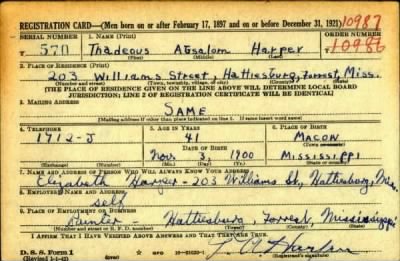 REGISTRATION CARD—(Men born on or after February 17, 1897 and on or before December 31, 1921) 10987
SERIAL NUMBER 1. NAME (Print) ORDER NUMBER
570 Thadeous Absalom Harper 10986
(First) (Middle) (Last)
2. PLACE OF RESIDENCE (Print)
203 Williams Street, Hattiesburg, Forrest, Miss.
(Number and street) (Town, township, village, or city) (County) (State)
[THE PLACE OF RESIDENCE GIVEN ON THE LINE ABOVE WILL DETERMINE LOCAL BOARD
JURISDICTION; LINE 2 OF REGISTRATION CERTIFICATE WILL BE IDENTICAL]
3. MAILING ADDRESS
SAME
[Mailing address if other than place indicated on line 2. If same insert word same]
4. TELEPHONE 5. AGE IN YEARS 6. PLACE OF BIRTH
1712-J 41 MACON
DATE OF BIRTH (Town or county)
Nov. 3, 1900 MISSISSIPPI
(Exchange) (Number) (Mo.) (Day) (Yr.) (State or country)
7. NAME AND ADDRESS OF PERSON WHO WILL ALWAYS KNOW YOUR ADDRESS
Elizabeth Harper - 203 Williams St, Hattiesburg, Miss.
8. EMPLOYER'S NAME AND ADDRESS
self
9. PLACE OF EMPLOYMENT OR BUSINESS
Hattiesburg, Forrest, Mississippi
(Number and street or R. F. D. number) (Town) (County) (State)
I AFFIRM THAT I HAVE VERIFIED ABOVE ANSWERS AND THAT THEY ARE TRUE.
D. S. S. Form 1
(Revised 1-1-42) (over)
(Registrant's signature)